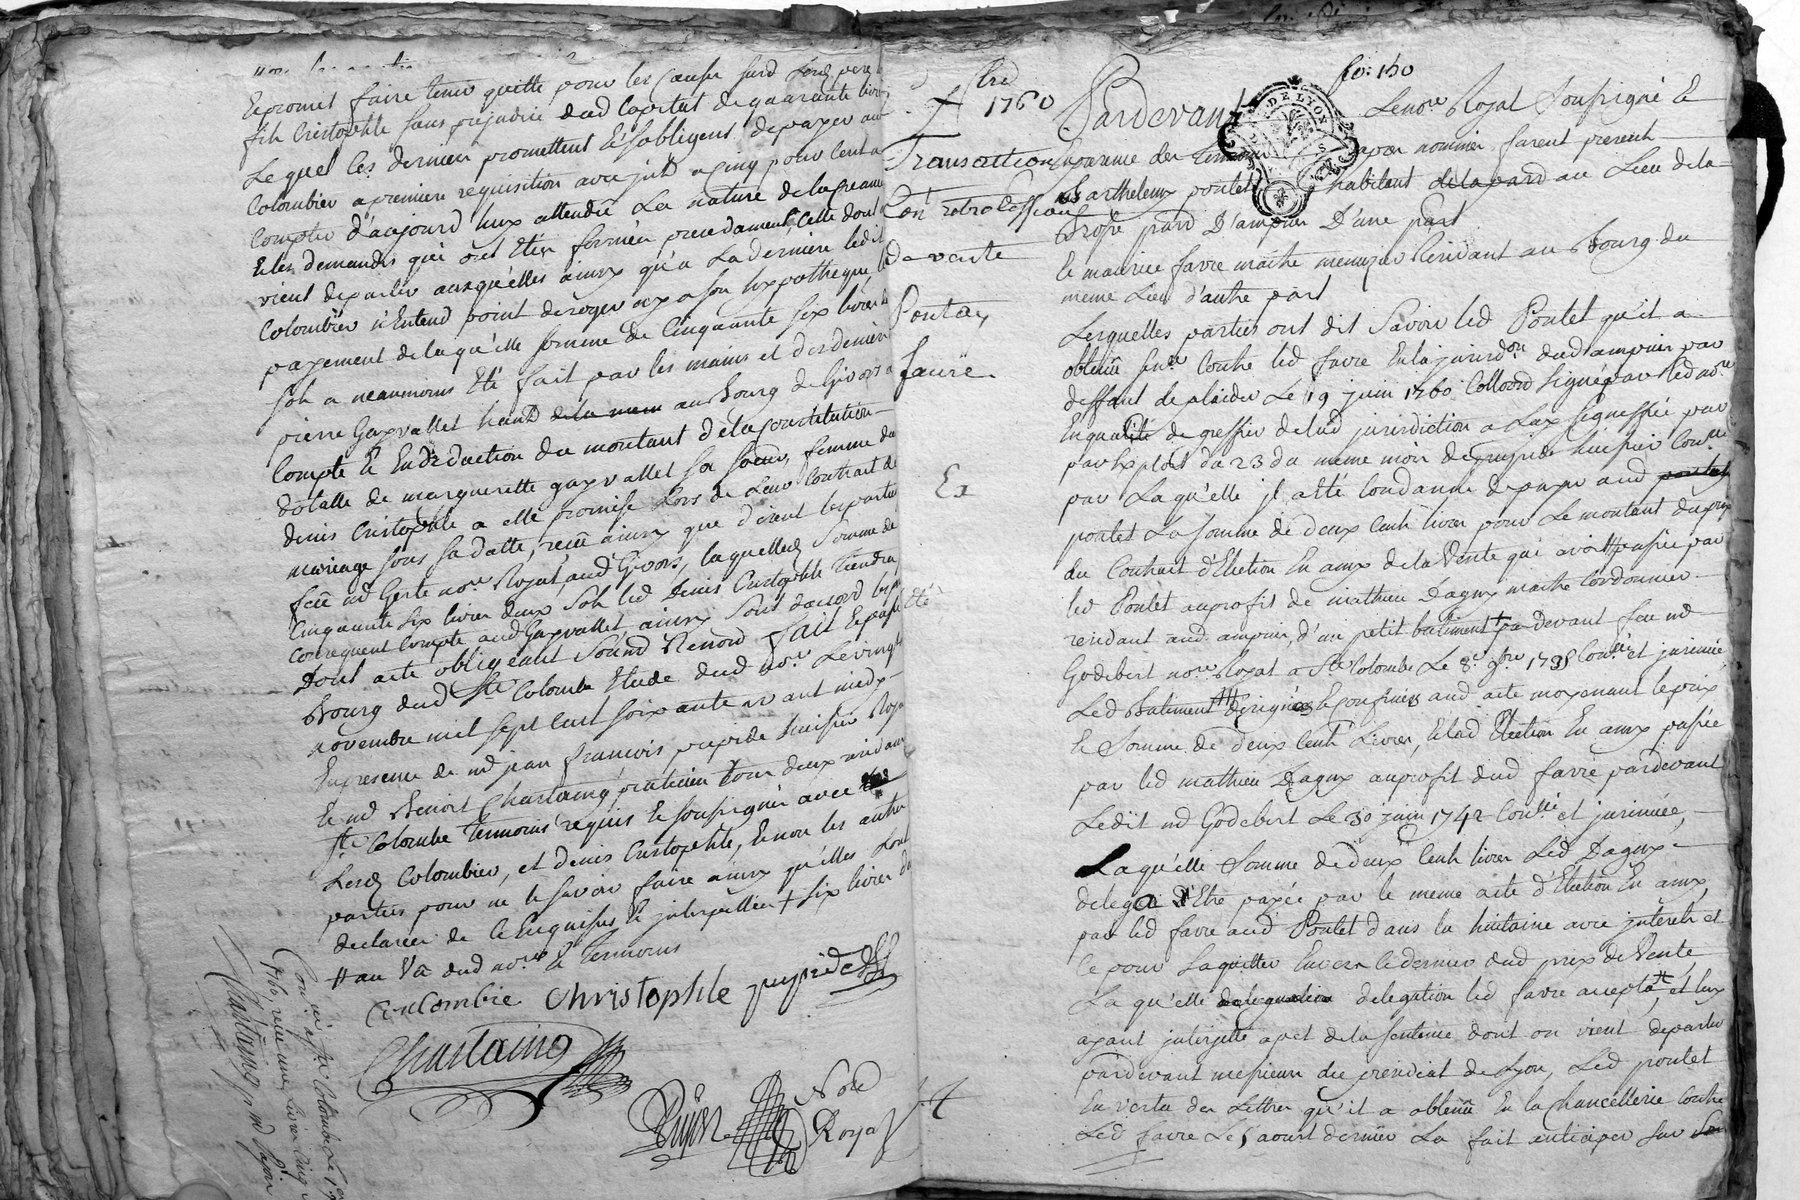 Et promet faire tenir quitte pour les causes susd lesd pere &
fils Cristophle sans prejudice dud Capital de quarante livres
Lequel les derniers promettent Et s'obligent de payer aud
Colombier a premiere requisition avec jnts a cinq pour Cent a
Compter d'aujourd huy attendû La nature de la creance
Et les demandes qui ont Eté formées precedament, Celle dont
vient de parler auxquelles ainsy qu'a La derniere ledit
Colombier n'Entend point deroger ny a son hypotheque, le
payement de laquelle somme de Cinquante six livres deux
sols a neanmoins Eté fait par les mains et des deniers
pierre Gayvallet habt de la mem au Bourg de Givors a
Compte Et En Deduction du montant de la Constitution
dotalle de marguerette gayvallet sa soeur, femme du
denis Cristophle a elle promise Lors de Leur Contrait de
mariage sous sa datte, recû ainsy que disent les parties
feu Md Geste nore Royal aud Givors, laquelled Somme de
Cinquante six livres deux sols led Denis Cristophle tiendra
Consequent Compte aud Gayvallet ainsy Sont d'acord les p
Dont acte obligeant Soûmd Renond fait Et passé
Bourg dud Ste Colombe Etude dud nore Le vingt
novembre mil sept Cent soixante avant midy
En presence de md jean francois pupide huissier Royal
Et md Benoit Chastaing praticien tous deux residants
Ste Colombe Temmoins requis Et soussignés avec
Lesd Colombier, et denis Cristophle, Et non les autres
parties pour ne le savoir faire ainsy qu'elles L'ont
declarées de Ce Enquises Et jnterpellées + six livres d
# au Va dud nore & Temmoins
Coulombie Christophle pupide
Chastaing
Dujast Nore
Royal
Conlé a Ste Colombe Le 1er
1760, recu une Livre cinq s
Chastaing p md Dujast
fo: 150
1760
Transaction
Con retrocession
de vente
Poulet
faure
Ex
Eté
DE LYON
Pardevant Le nore Royal Soussigné Et
En presence des temmoins apres nommés furent presents
Barthelemy poulet habitant de la pard au Lieu de la
Brosse pard D'ampuis D'une part
Et maurice favre maitre menuizier Residant au Bourg du
meme Lieu d'autre part
Lesquelles parties ont dit Savoir led Poulet qu'il a
obtenû snce contre led favre En la jurisdon dud ampuis par
deffaut de plaider Le 19 juin 1760, Colloond Signé par led nore
En qualité de greffier de lad jurisdiction a Luy signiffiée par
par Exploit du 23 du meme mois de pupide huissier Conlé
par Laquelle jl a eté Condamné de payer aud poulet
poulet La somme de deux Cents livres pour Le montant du prix
du Contrait d'Election En amy de la Vente qui avoit passée par
led Poulet au profit de mathieu Dagny maitre Cordonnier
residant aud ampuis, d'un petit batiment pardevant feu md
Godebert nore Royal a Ste Colombe Le 8e 9bre 1738 Conlé et jnsinué
Led Batiment designé & Confiné aud acte moyenant le prix
Et somme de deux Cents Livres, Et lad Election En amy passée
par led mathieu Dagny au profit dud favre pardevant
Ledit md Godebert Le 30 juin 1742 Conlé et jnsinuée,
Laquelle somme de deux Cents livres Led Dagny
delega d'Etre payée par le meme acte d'Election En amy
par led favre aud Poulet dans la huitaine avec jnterets et
Ce pour s'aquitter Envers ce dernier dud prix de Vente
Laquelle delegation led favre accepta, et luy
ayant jnterjetté apel de la sentence dont on vient de parler
pardevant messieurs du presidial de Lyon, Led poulet
En vertu des Lettres qu'il a obtenû En la Chancellerie Contre
Led favre Le 5 aoust dernier La fait anticiper sur Son